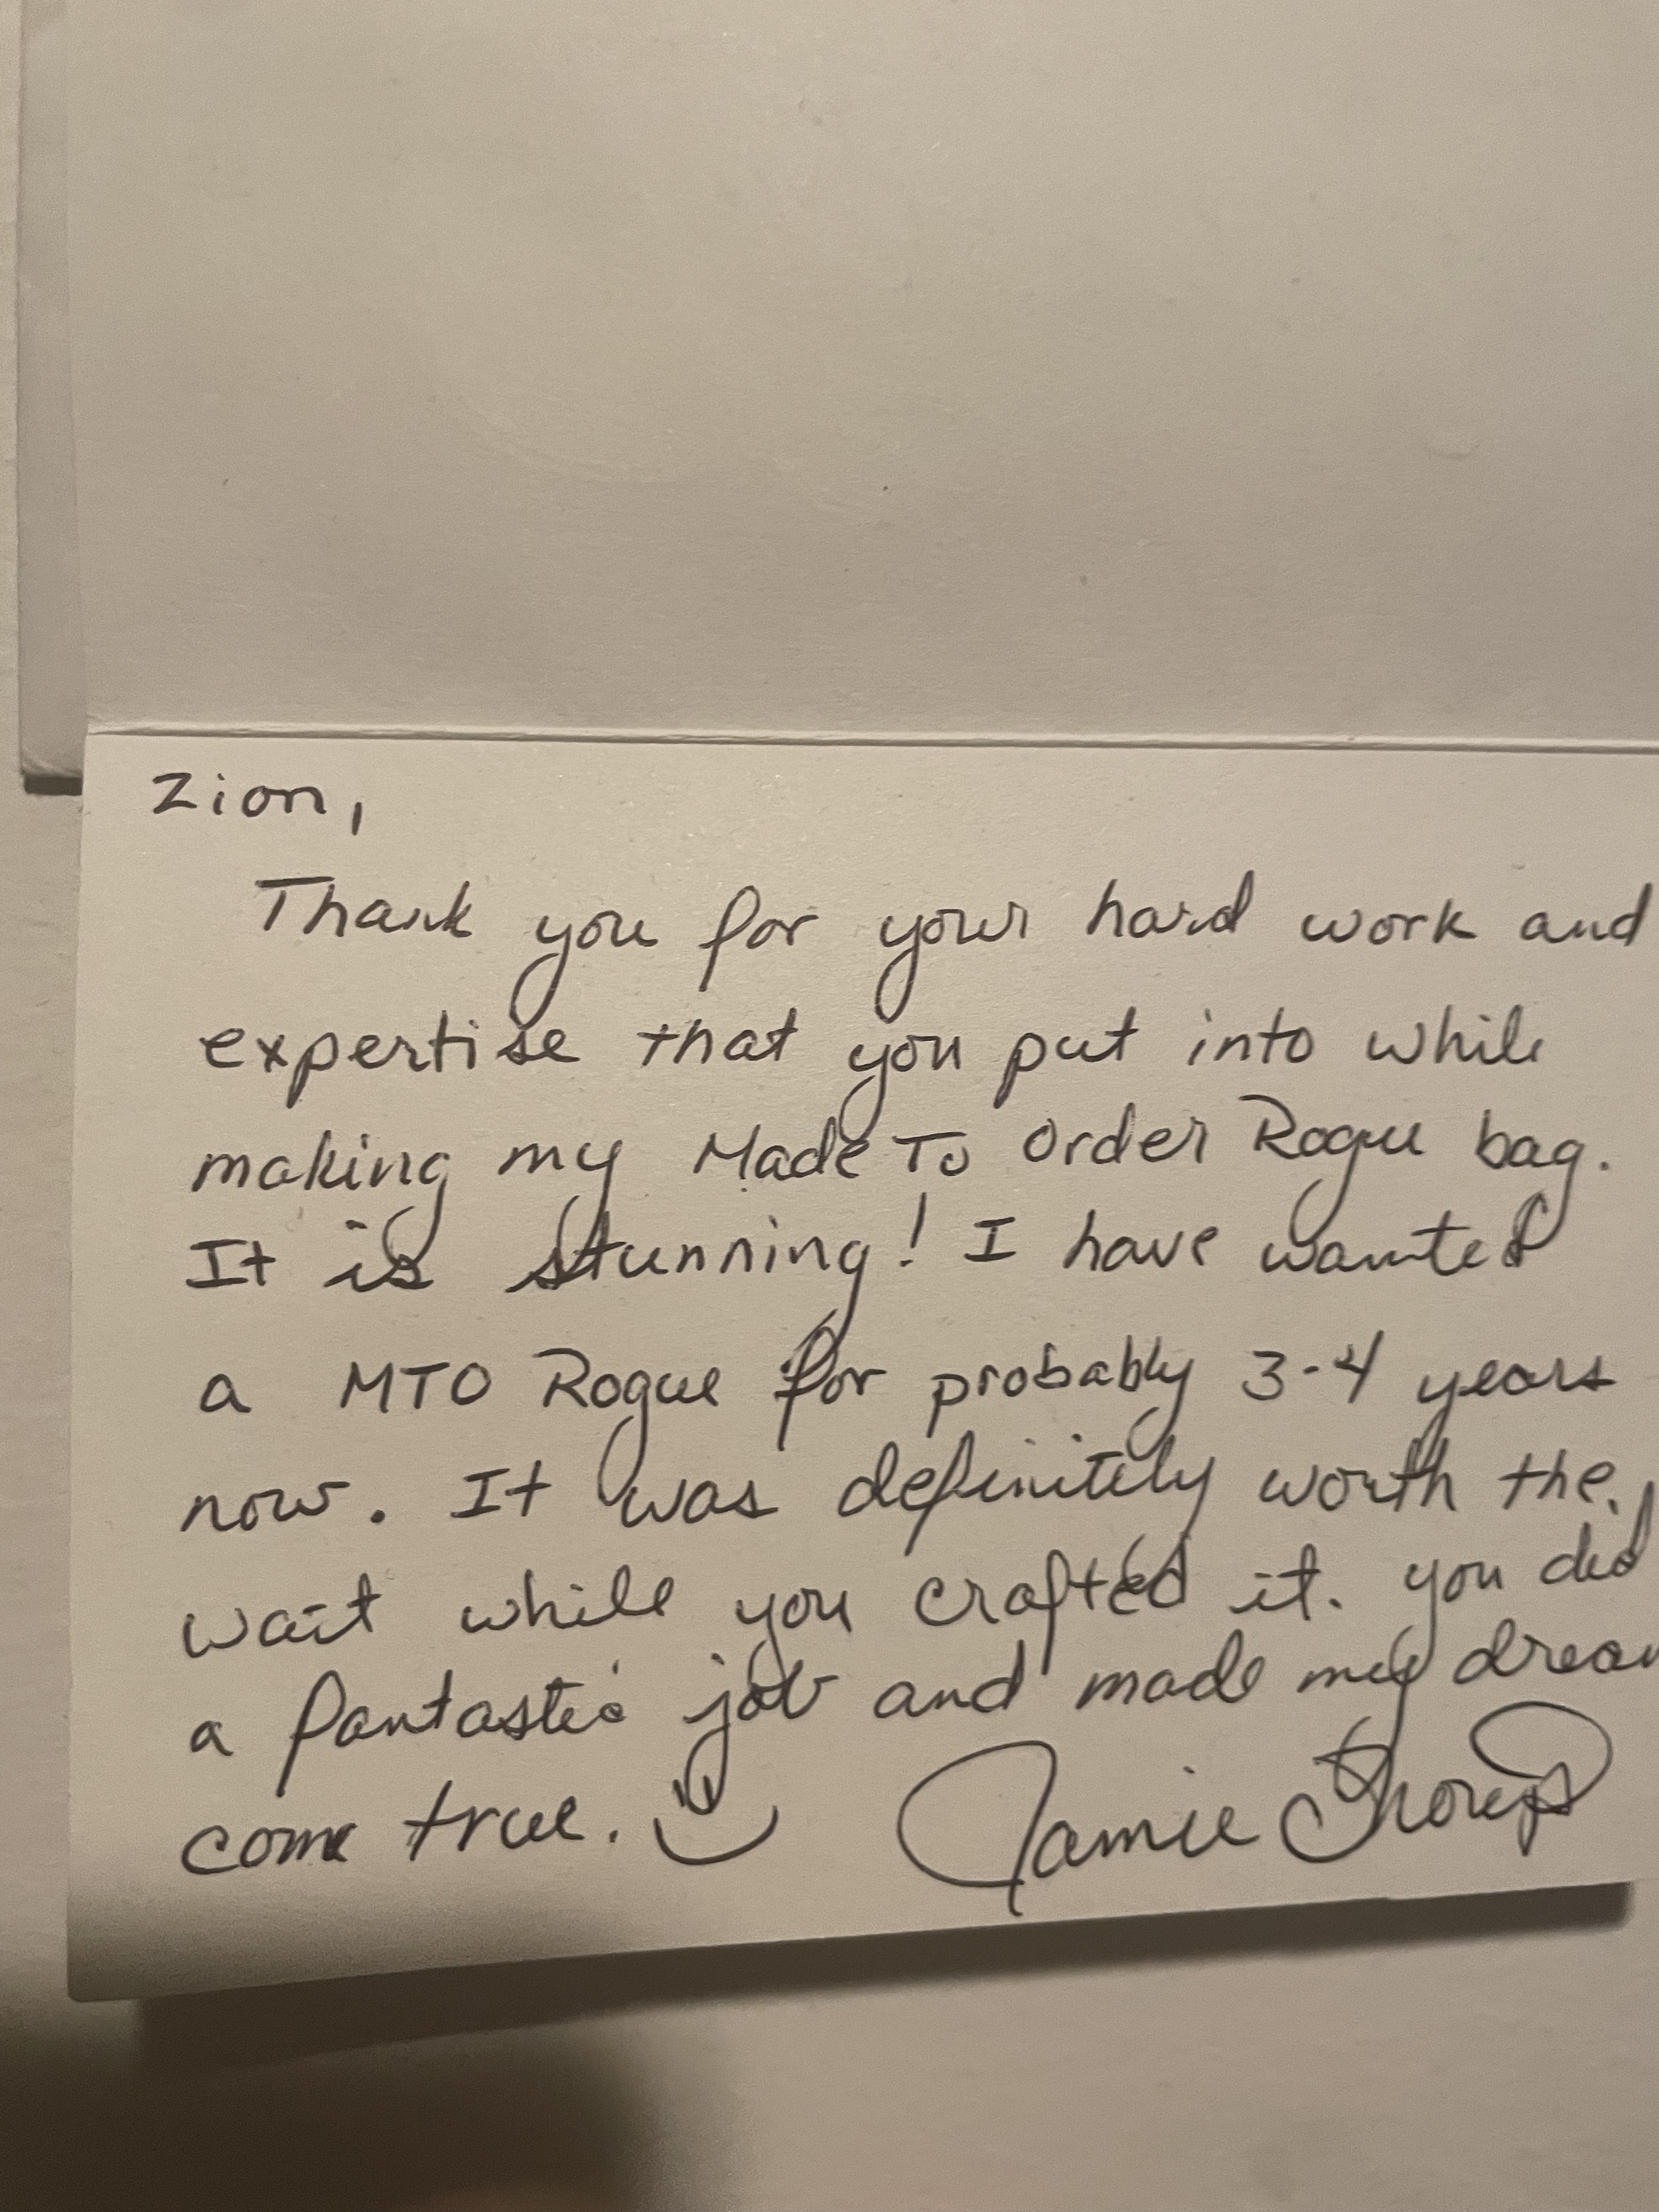 Zion,
Thank you for your hard work and
expertise that you put into while
making my Made To Order Rogue bag.
It is stunning! I have wanted
a MTO Rogue for probably 3-4 years
now. It was definitely worth the
wait while you crafted it. you did
a fantastic job and made my dream
come true.
Jamie